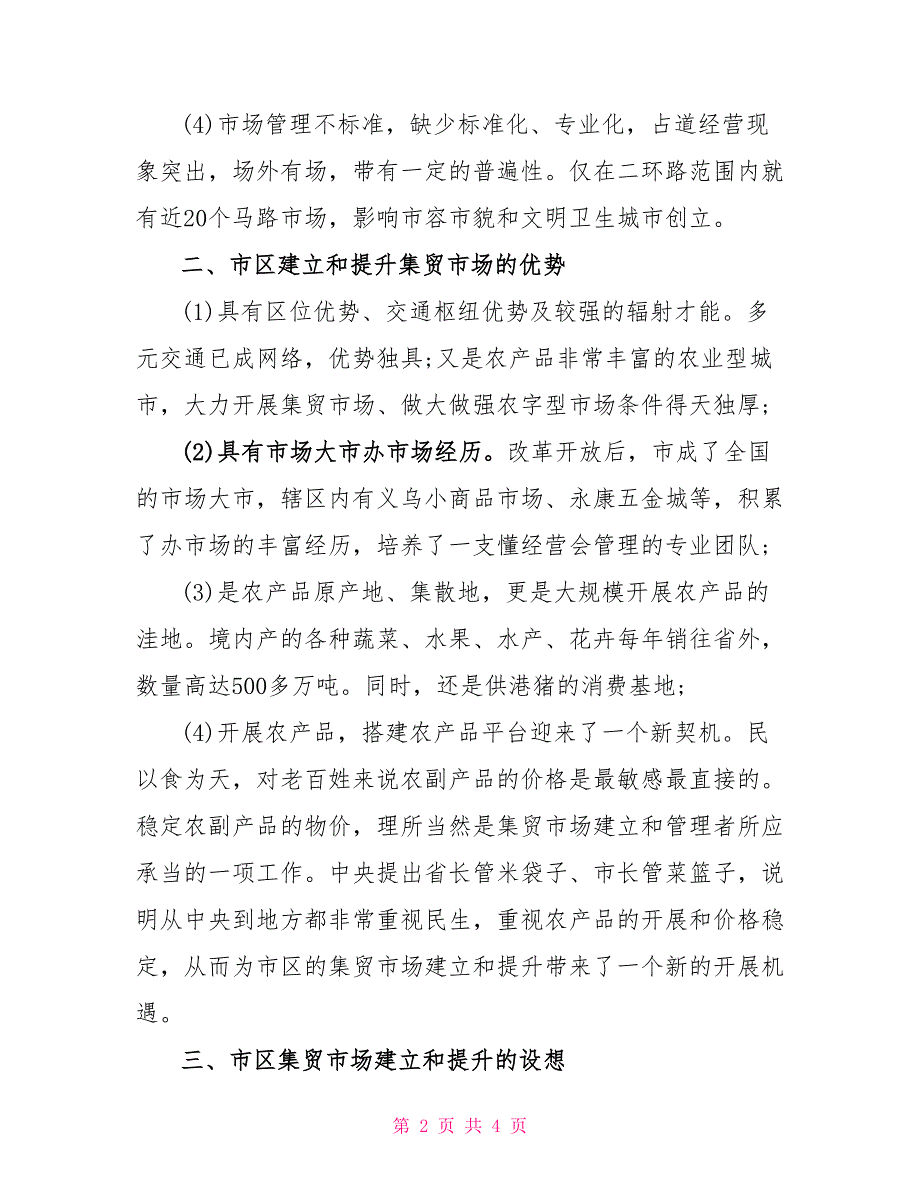 (4)市场管理不标准，缺少标准化、专业化，占道经营现
象突出，场外有场，带有一定的普遍性。仅在二环路范围内就
有近20个马路市场，影响市容市貌和文明卫生城市创立。
二、市区建立和提升集贸市场的优势
(1)具有区位优势、交通枢纽优势及较强的辐射才能。多
元交通已成网络，优势独具;又是农产品非常丰富的农业型城
市，大力开展集贸市场、做大做强农字型市场条件得天独厚;
(2)具有市场大市办市场经历。改革开放后，市成了全国
的市场大市，辖区内有义乌小商品市场、永康五金城等，积累
了办市场的丰富经历，培养了一支懂经营会管理的专业团队;
(3)是农产品原产地、集散地，更是大规模开展农产品的
洼地。境内产的各种蔬菜、水果、水产、花卉每年销往省外，
数量高达500多万吨。同时，还是供港猪的消费基地;
(4)开展农产品，搭建农产品平台迎来了一个新契机。民
以食为天，对老百姓来说农副产品的价格是最敏感最直接的。
稳定农副产品的物价，理所当然是集贸市场建立和管理者所应
承当的一项工作。中央提出省长管米袋子、市长管菜篮子，说
明从中央到地方都非常重视民生，重视农产品的开展和价格稳
定，从而为市区的集贸市场建立和提升带来了一个新的开展机
遇。
三、市区集贸市场建立和提升的设想
第 2 页 共 4 页